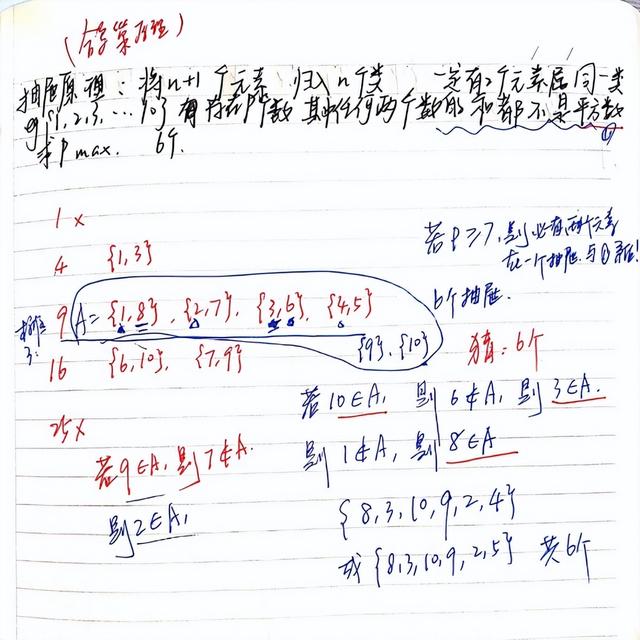 (鸽巢原理)
抽屉原理：将n+1个元素 归入n个类 一定有2个元素属同一类
eg {1,2,3,…10} 有 P个数 其中任何两个数的和都不是平方数 ①
求Pmax. 6个.
1 ×
4 {1,3}
若P≥7,则必有两个元素
在一个抽屉.与①矛盾!
9 A={1,8},{2,7},{3,6},{4,5}
6个抽屉.
{9},{10}
16 {6,10},{7,9}
猜：6个
25×
若10∈A, 则6∉A,则3∈A.
若9∈A,则7∉A.
则1∉A,则8∈A
则2∈A,
{8,3,10,9,2,4}
或{8,3,10,9,2,5} 共6个